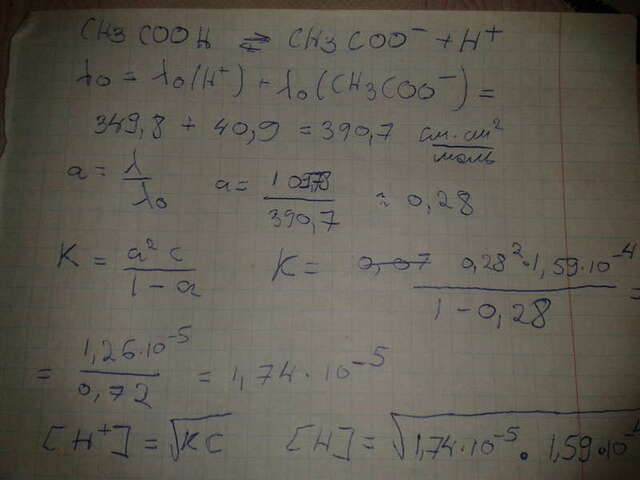 CH3COOH ⇌ CH3COO⁻ + H⁺
λ₀ = λ₀(H⁺) + λ₀(CH3COO⁻) =
349,8 + 40,9 = 390,7 см·см²/моль
a = λ/λ₀ a = /390,7 ≈ 0,28
K = a²c/1-a K = 0,07 0,28²·1,59·10⁻⁴/1-0,28 =
= 1,26·10⁻⁵/0,72 = 1,74·10⁻⁵
[H⁺] = √KC [H] = √1,74·10⁻⁵ · 1,59·10